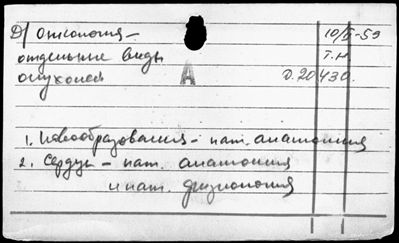 D/ Онкология — 10/II-59
отдельные виды Т.Н.
опухолей А D. 20430.
1. Новообразования - пат. анатомия
2. Сердце - пат. анатомия
и пат. физиология